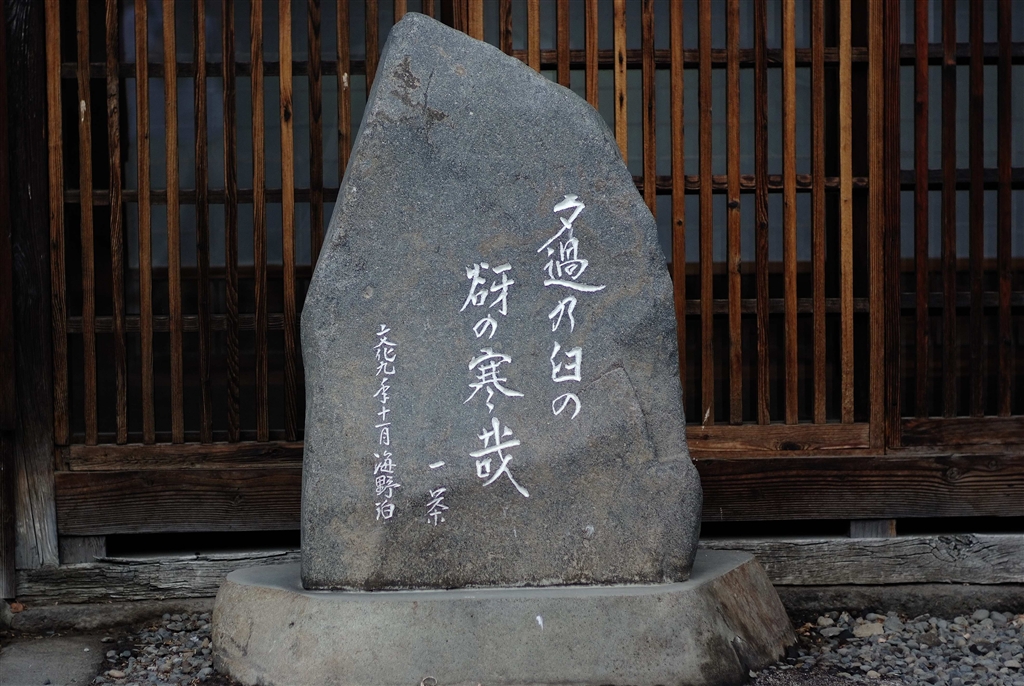 夕過乃臼の
谺の寒さ哉
一茶
文化九年十一月海野泊